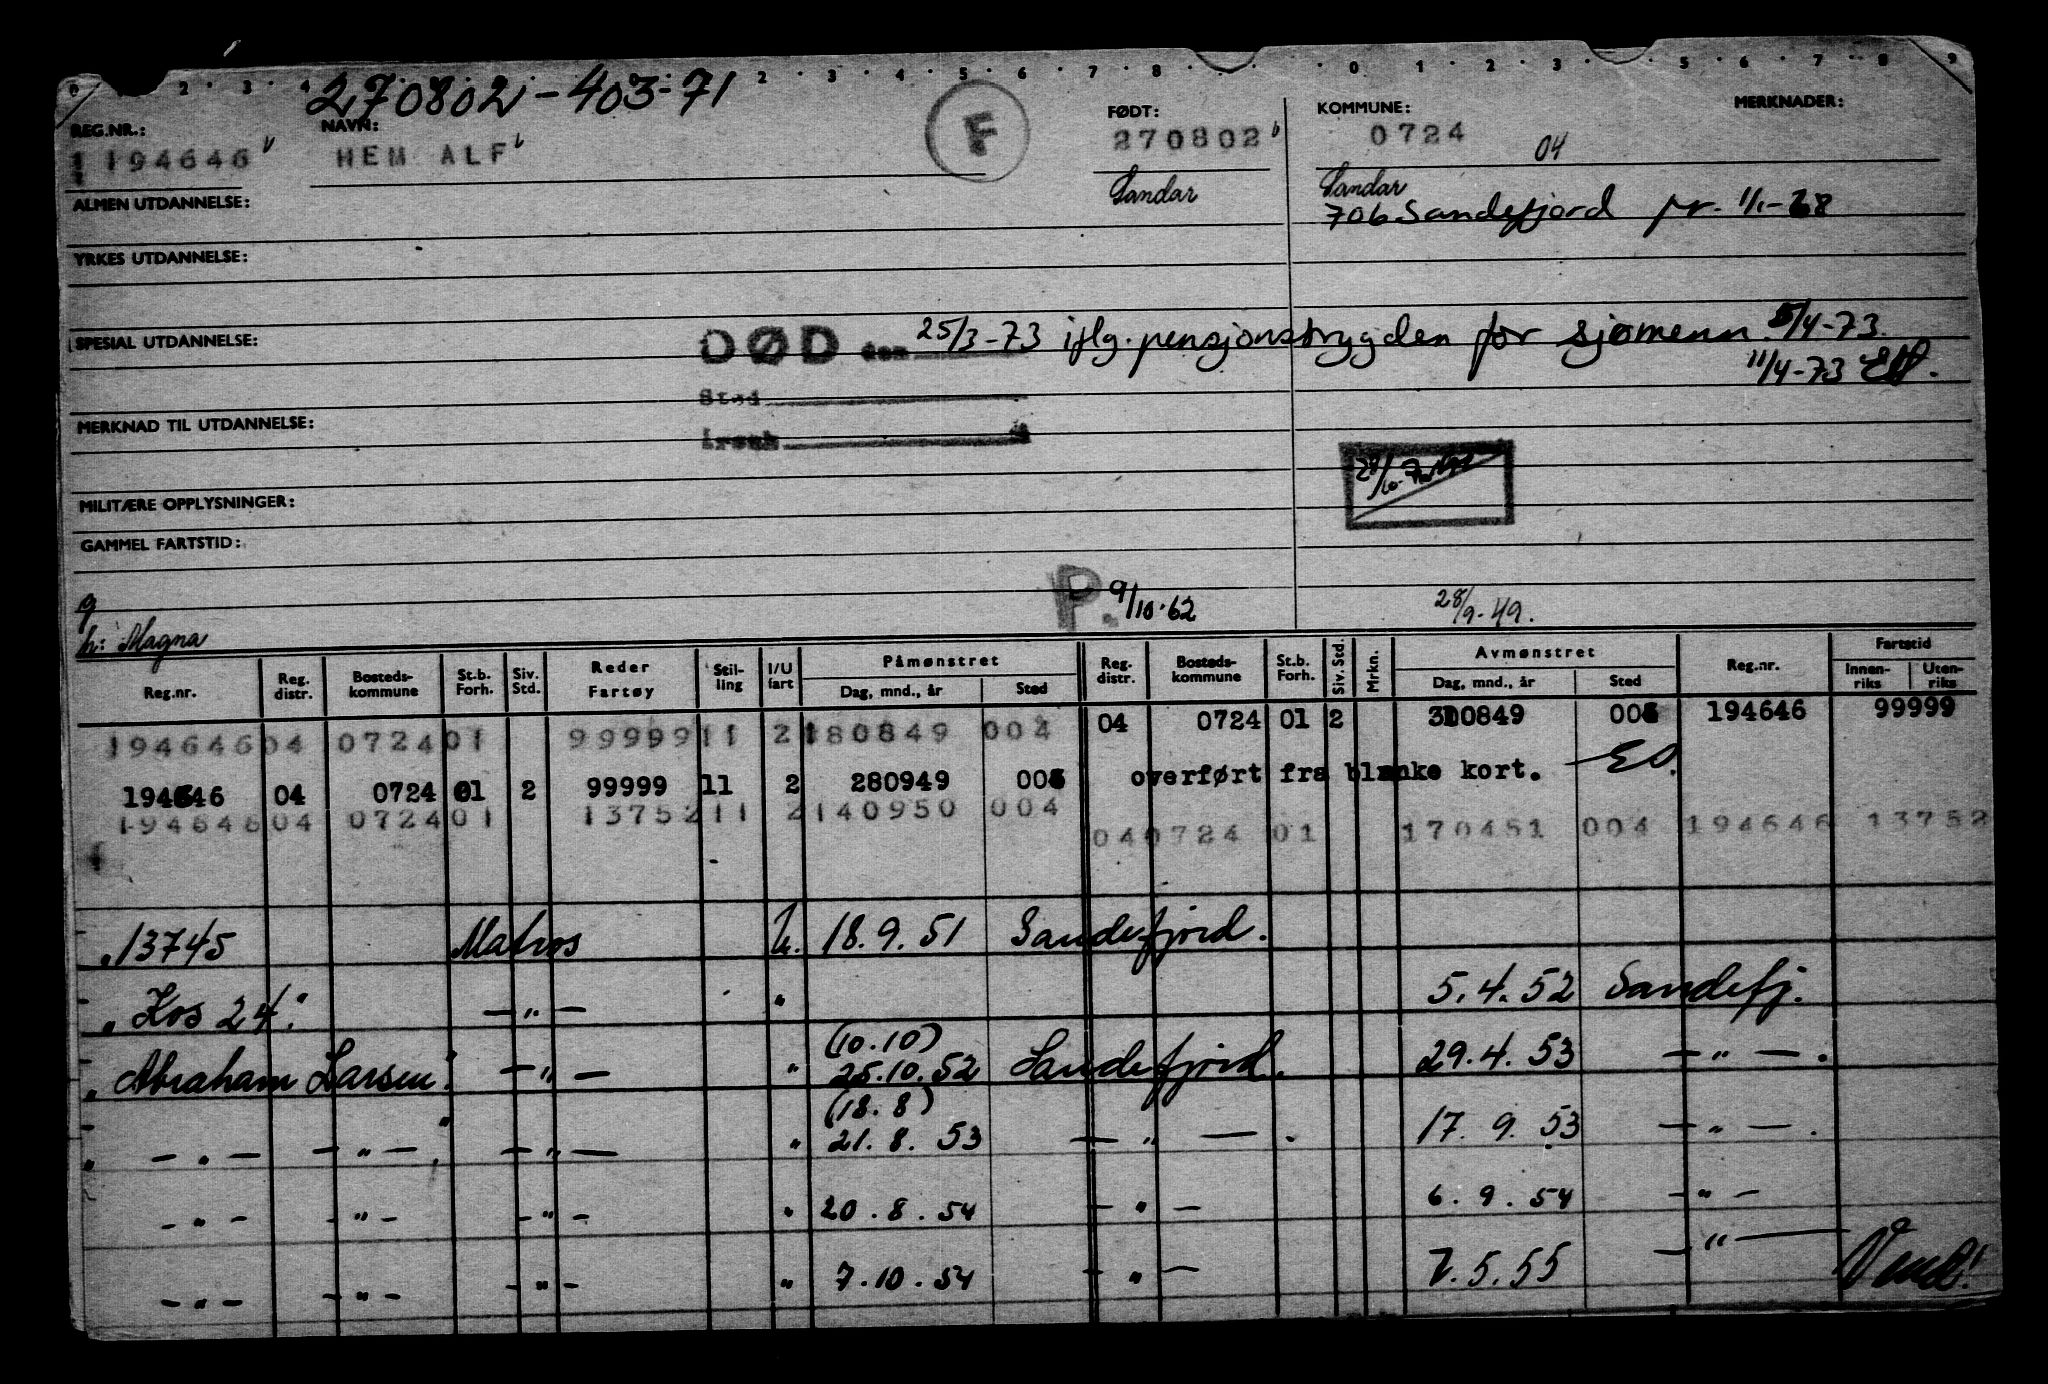 270802-403-71
REG.NR.: NAVN: FØDT: KOMMUNE: MERKNADER:
194646 HEM ALF F 270802 0724 04
Sandar Sandar
ALMEN UTDANNELSE: 706 Sandefjord pr. 1/1-68
YRKES UTDANNELSE:
SPESIAL UTDANNELSE: DØD den 25/3-73 iflg. pensjonstrygden for sjømenn 5/4-73.
11/4-73
Sted
MERKNAD TIL UTDANNELSE:
MILITÆRE OPPLYSNINGER:
GAMMEL FARTSTID:
g P. 9/10-62 28/9-49.
h: Magna
Reg.nr. Reg. distr. Bosteds-kommune St.b. Forh. Siv. Std. Reder Fartøy Stil-ling I/U fart Påmønstret Dag, mnd., år Sted Reg. distr. Bosteds-kommune St.b. Forh. Siv. Std. Mrkn. Avmønstret Dag, mnd., år Sted Reg.nr. Fartstid Innen-riks Uten-riks
194646 04 0724 01 99999 11 2 180849 004 04 0724 01 2 310849 004 194646 99999
194646 04 0724 01 2 99999 11 2 280949 004 overført fra blanke kort. EO.
194646 04 0724 01 13752 11 2 140950 004 04 0724 01 170451 004 194646 13752
" 13745 Matros U. 18.9.51 Sandefjord.
" Kos 24." — " — " 5.4.52 Sandefj.
(10.10)
" Abraham Larsen." — " — " 25.10.52 Sandefjord. 29.4.53 — " — .
(18.8)
" — " — — " — " — " — " 21.8.53 — " — . 17.9.53 — " — .
— " — — " — — " — " 20.8.54 — " — 6.9.54 — " —
— " — — " — — " — " 7.10.54 — " — 7.5.55 — " — Vend!